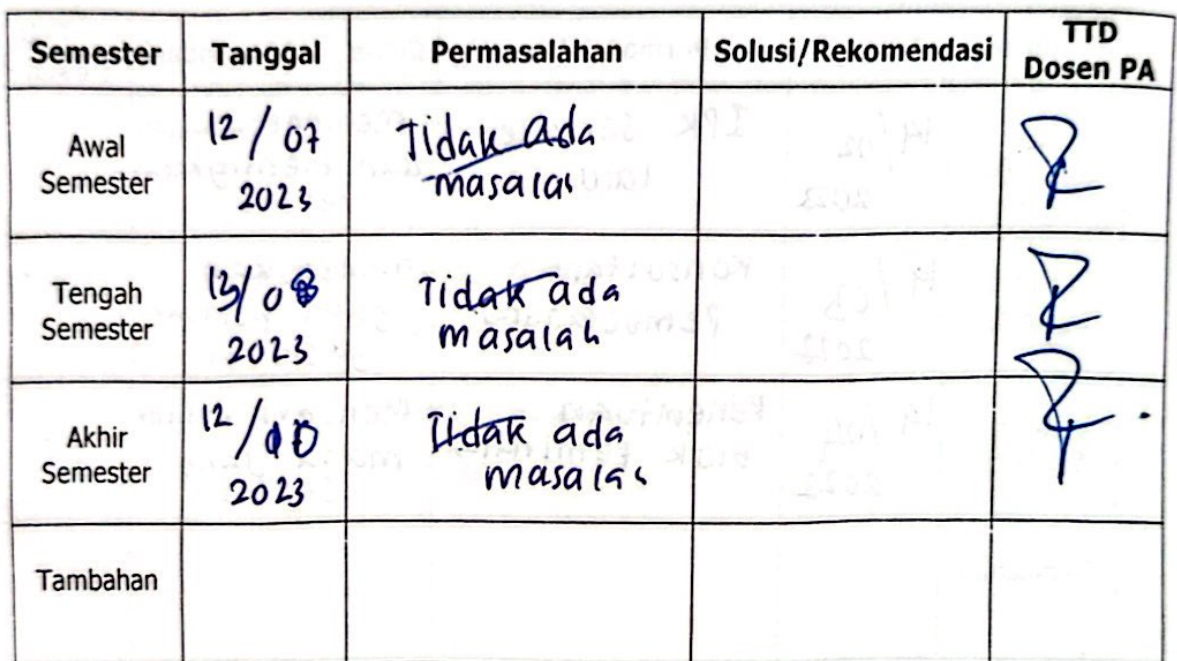 Semester Tanggal Permasalahan Solusi/Rekomendasi TTD Dosen PA
Awal Semester 12/07 2023 Tidak ada masalah
Tengah Semester 13/08 2023 Tidak ada masalah
Akhir Semester 12/10 2023 Tidak ada masalah
Tambahan